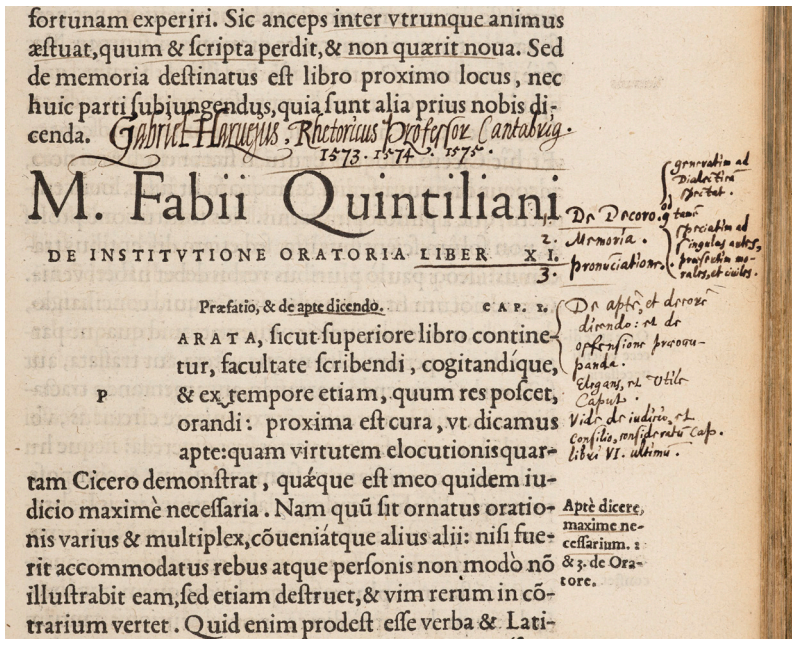 fortunam experiri. Sic anceps inter vtrunque animus
æſtuat, quum & ſcripta perdit, & non quærit noua. Sed
de memoria deſtinatus eſt libro proximo locus, nec
huic parti ſubiungendus, quia ſunt alia prius nobis di-
cenda.
Gabriel Haruejus, Rhetoricus Profeſſor Cantabrig.
1573. 1574. 1575.
M. Fabii Quintiliani
DE INSTITVTIONE ORATORIA LIBER XI.
1. De Decoro.
2. Memoria.
3. pronunciatione.
generatim ad
Dialecticā
ſpectat.
ſpeciatim ad
ſingulas artes,
præſertim mo-
rales, et ciuiles.
Præfatio, & de apte dicendo. CAP. I.
De aptè, et decorè
dicendo: et de
offenſione præoccu-
panda.
Elegans, et Vtile
Caput.
Vide de iudicio, et
Conſilio, conſideratū Cap.
libri VI. ultimū.
PARATA, ſicut ſuperiore libro contine-
tur, facultate ſcribendi, cogitandíque,
& ex tempore etiam, quum res poſcet,
orandi: proxima eſt cura, vt dicamus
apte: quam virtutem elocutionis quar-
tam Cicero demonſtrat, quǽque eſt meo quidem iu-
dicio maximè neceſſaria. Nam quū ſit ornatus oratio-
nis varius & multiplex, cōueniátque alius alii: niſi fue-
rit accommodatus rebus atque perſonis non modò nō
illuſtrabit eam, ſed etiam deſtruet, & vim rerum in cō-
trarium vertet. Quid enim prodeſt eſſe verba & Lati-
Aptè dicere,
maxime ne-
ceſſarium. 1
& 3. de Ora-
tore.